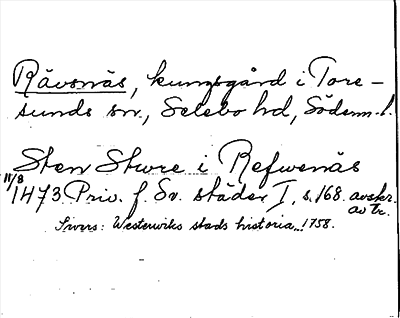 Rävsnäs, kungsgård i Tore-
sunds sn., Selebo hd, Söderm.l.
Sten Sture i Refwenäs
11/8
1473. Priv. f. Sv. städer I, s. 168. avskr.
av tr.
Sivers: Westerwiks stads historia... 1758.